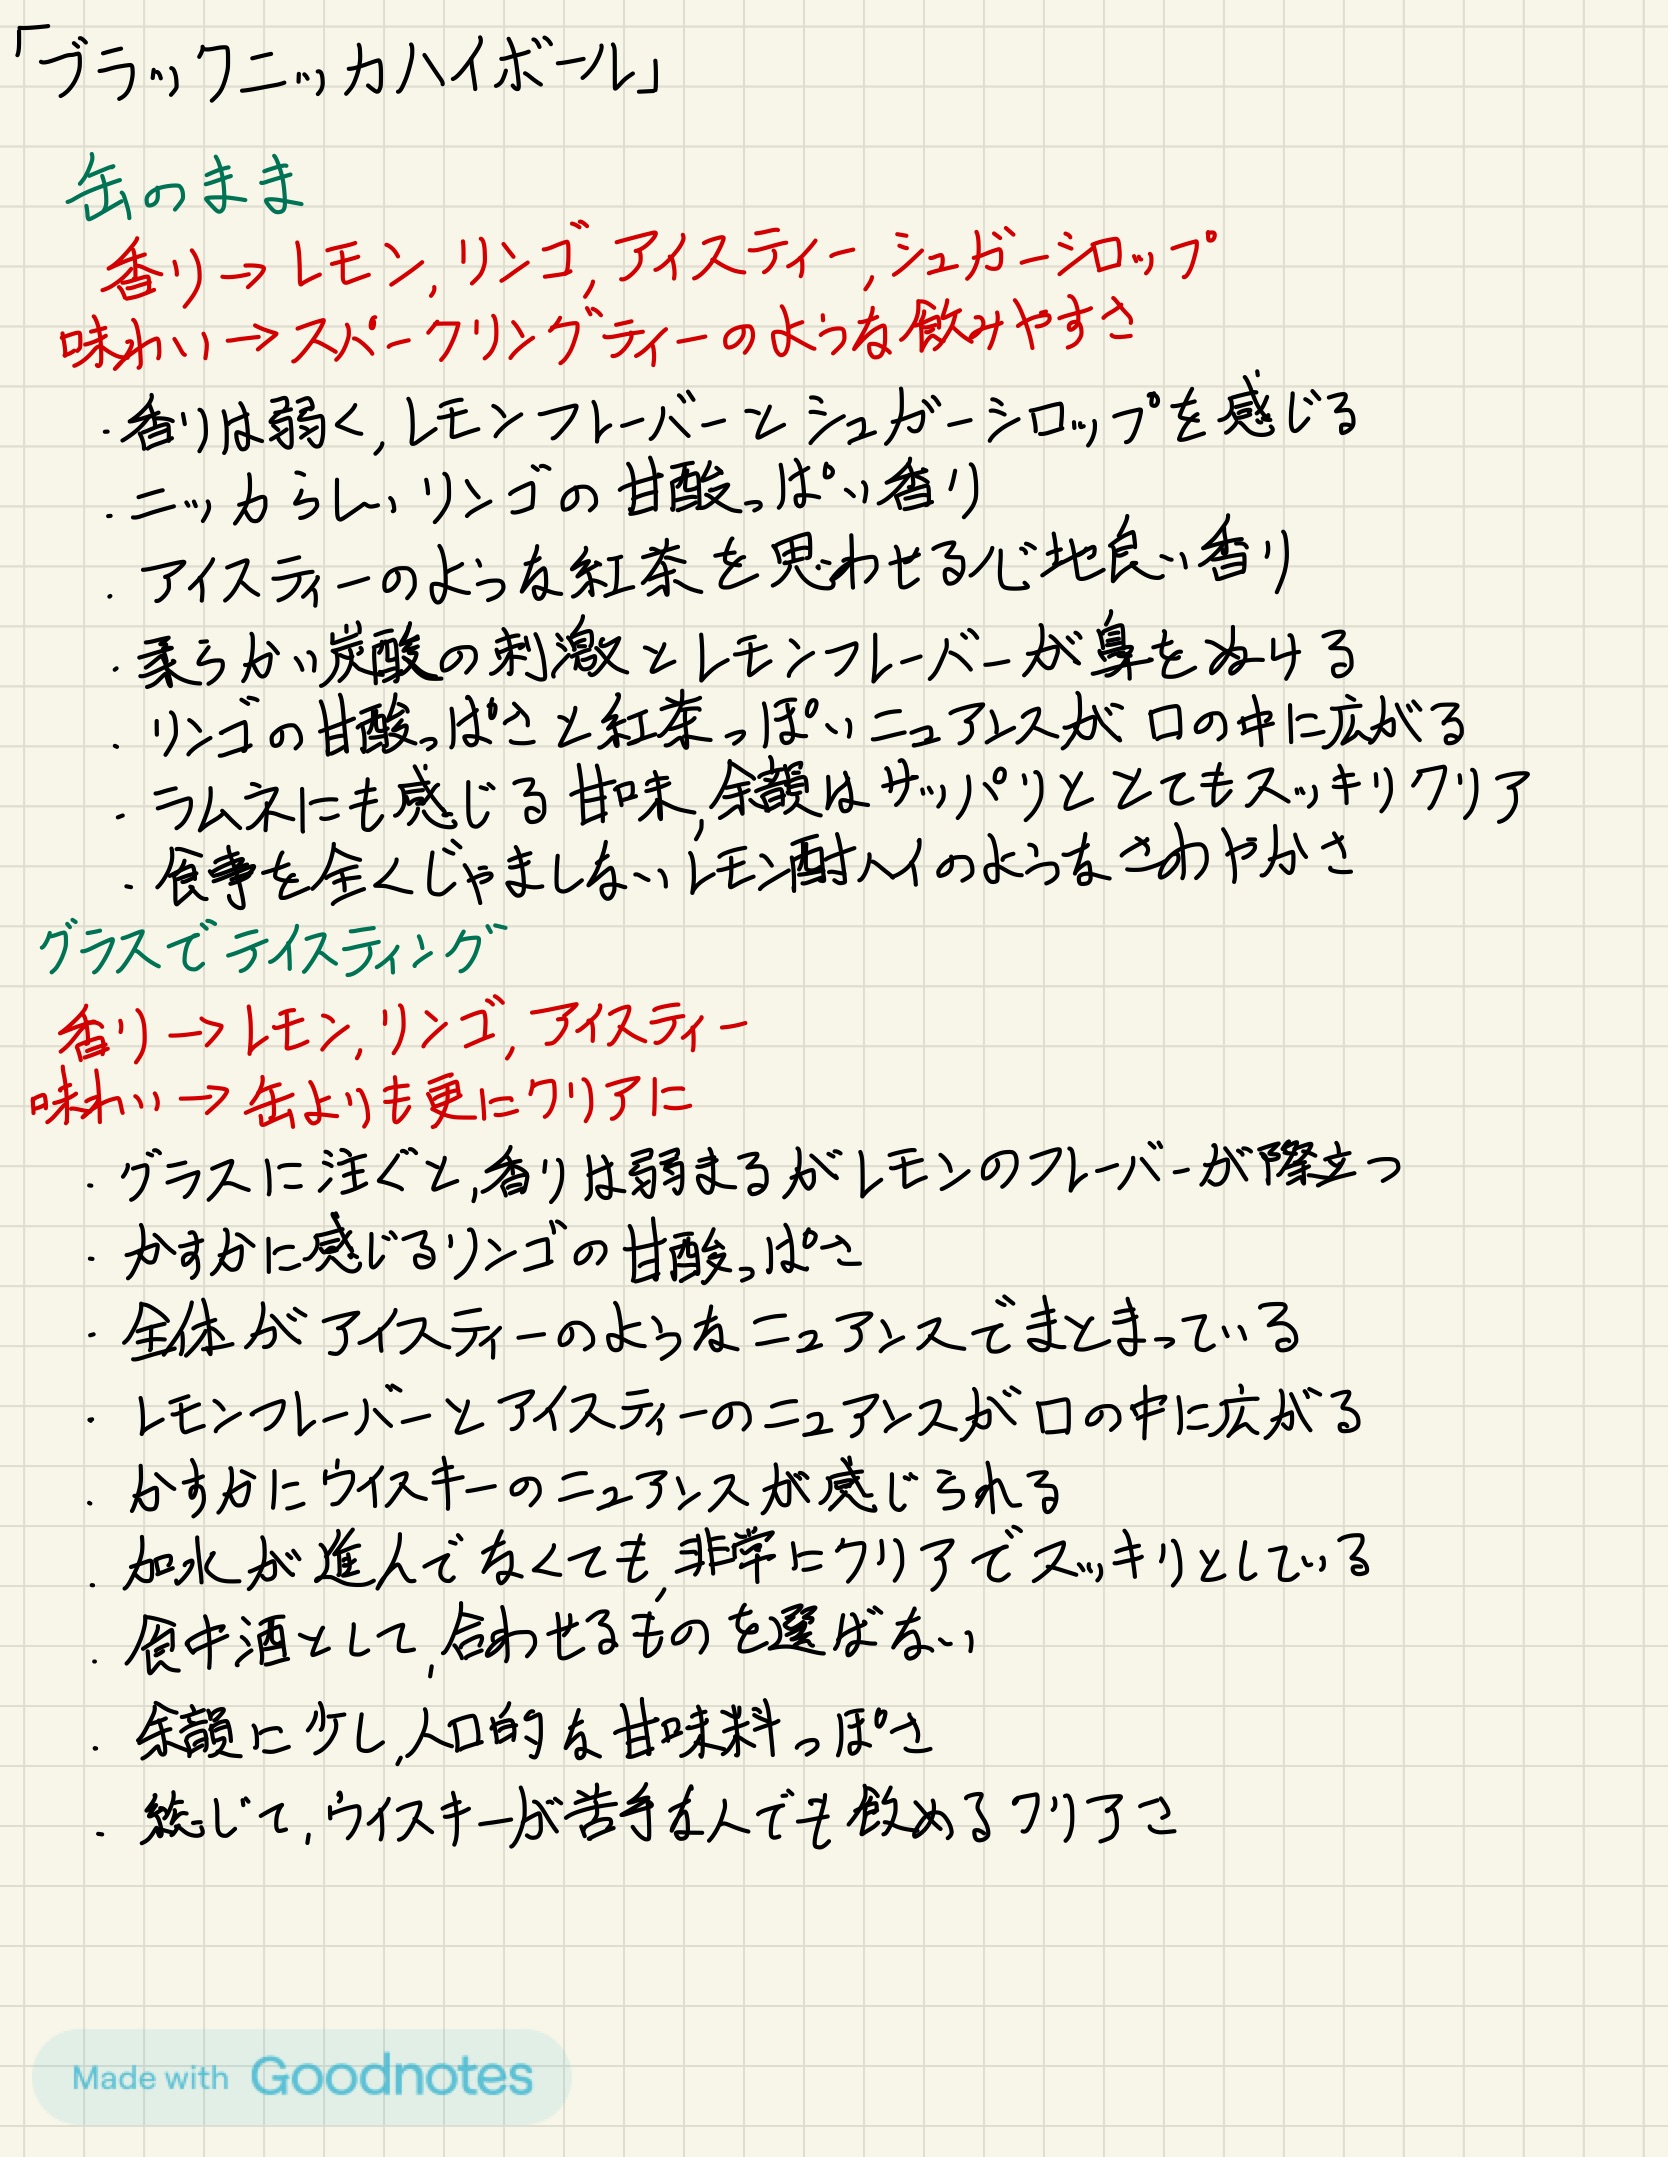 「ブラックニッカハイボール」
缶のまま
香り→レモン,リンゴ,アイスティー,シュガーシロップ
味わい→スパークリングティーのような飲みやすさ
・香りは弱く,レモンフレーバーとシュガーシロップを感じる
・ニッカらしいリンゴの甘酸っぱい香り
・アイスティーのような紅茶を思わせる心地良い香り
・柔らかい炭酸の刺激とレモンフレーバーが鼻をぬける
・リンゴの甘酸っぱさと紅茶っぽいニュアンスが口の中に広がる
・ラムネにも感じる甘味,余韻はサッパリととてもスッキリクリア
・食事を全くじゃましないレモン酎ハイのようなさわやかさ
グラスでテイスティング
香り→レモン,リンゴ,アイスティー
味わい→缶よりも更にクリアに
・グラスに注ぐと,香りは弱まるがレモンのフレーバーが際立つ
・かすかに感じるリンゴの甘酸っぱさ
・全体がアイスティーのようなニュアンスでまとまっている
・レモンフレーバーとアイスティーのニュアンスが口の中に広がる
・かすかにウイスキーのニュアンスが感じられる
・加水が進んでなくても,非常にクリアでスッキリとしている
・食中酒として,合わせるものを選ばない
・余韻に少し,人口的な甘味料っぽさ
・総じて,ウイスキーが苦手な人でも飲めるクリアさ
Made with Goodnotes